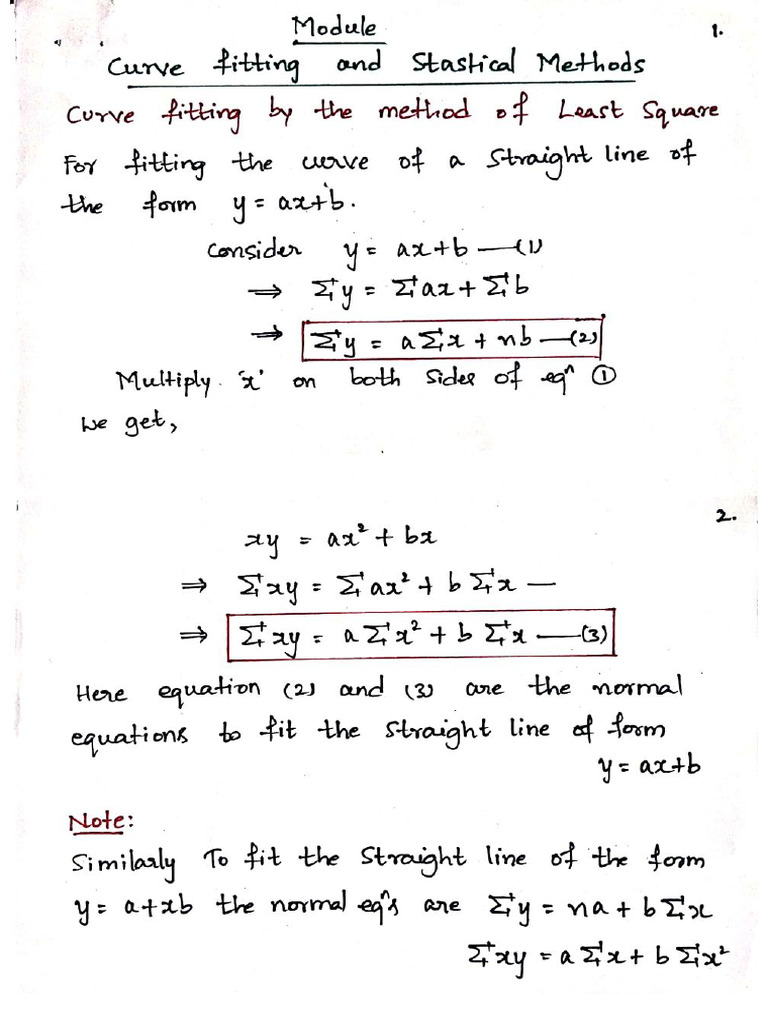 Module
1.
Curve fitting and Stastical Methods
Curve fitting by the method of Least Square
For fitting the curve of a straight line of
the form y = ax+b.
Consider y = ax+b —(1)
⇒ Σy = Σax + Σb
⇒ Σy = aΣx + nb —(2)
Multiply 'x' on both sides of eqⁿ ①
we get,
2.
xy = ax² + bx
⇒ Σxy = Σax² + bΣx —
⇒ Σxy = aΣx² + bΣx —(3)
Here equation (2) and (3) are the normal
equations to fit the straight line of form
y = ax+b
Note:
Similarly To fit the straight line of the form
y = a+xb the normal eqⁿs are Σy = na + bΣx
Σxy = aΣx + bΣx²